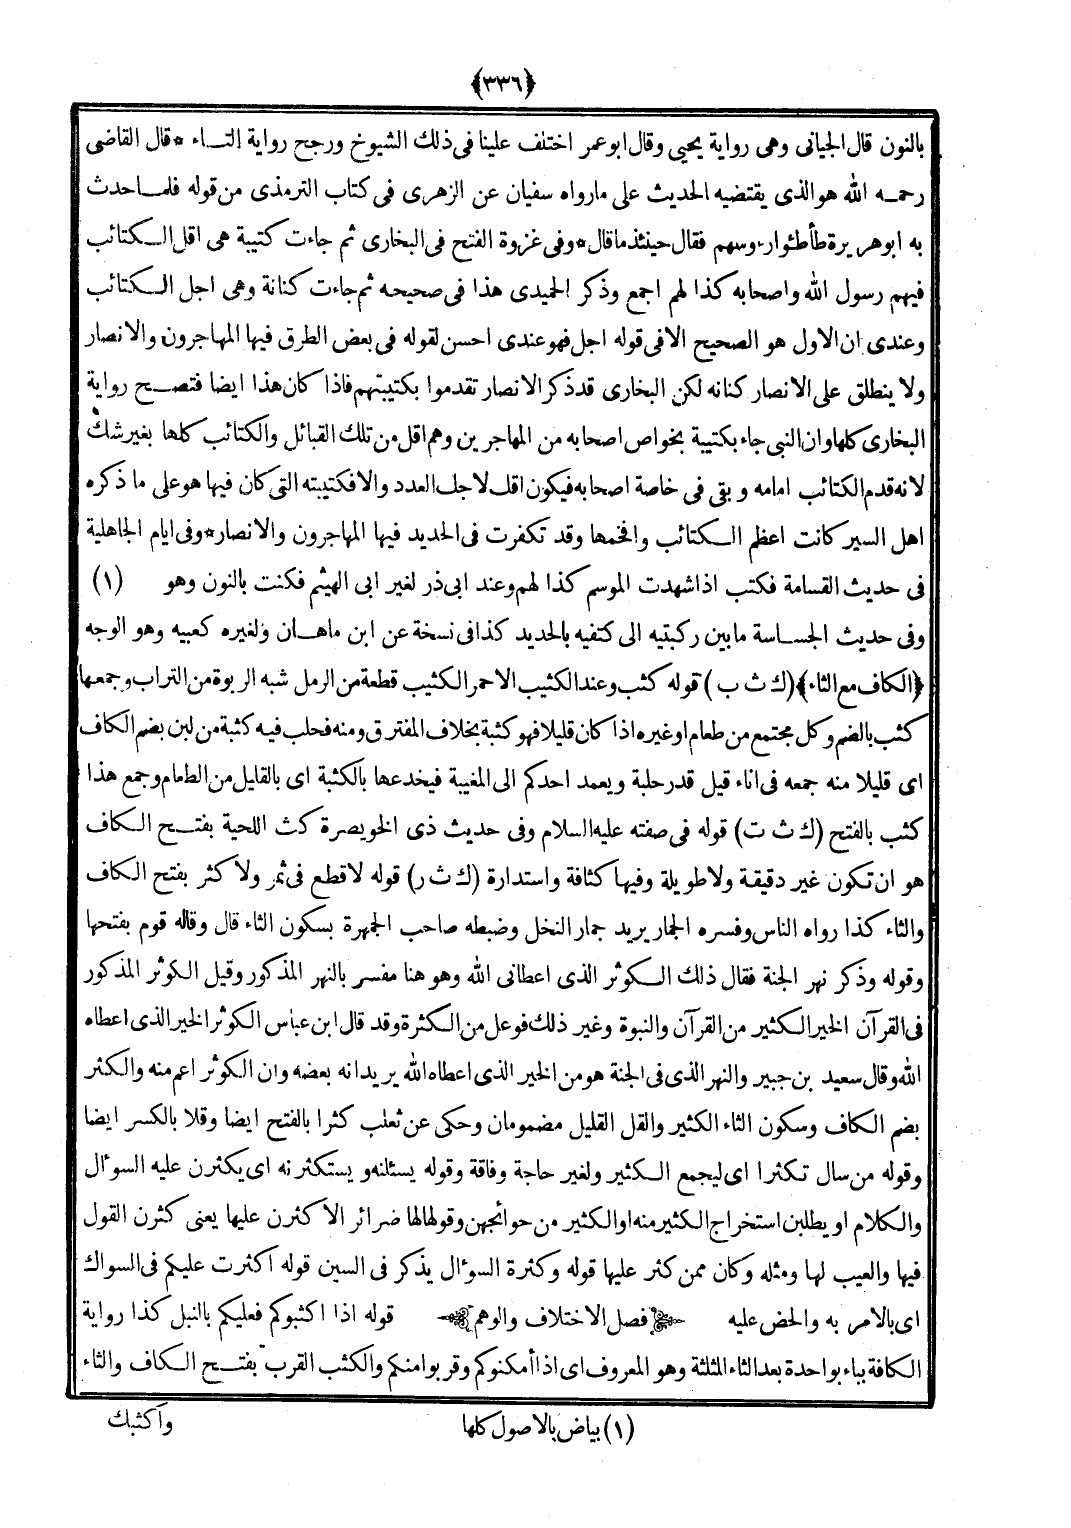 ﴿٣٣٦﴾
بالنون قال الجيانى وهى رواية يحيى وقال ابوعمر اختلف علينا فى ذلك الشيوخ ورجح رواية التــاء * قال القاضى
رحمـه الله هو الذى يقتضيه الحديث على مارواه سفيان عن الزهرى فى كتاب الترمذى من قوله فلمـاحدث
به ابوهريرة طأطئوارءوسهم فقال حينئذ ماقال * وفى غزوة الفتح فى البخارى ثم جاءت كتيبة هى اقل الـكتائب
فيهم رسول الله واصحابه كذا لهم اجمع وذكر الحميدى هذا فى صحيحه ثم جاءت كنانة وهى اجل الـكتائب
وعندى ان الاول هو الصحيح الا فى قوله اجل فهو عندى احسن لقوله فى بعض الطرق فيها المهاجرون والانصار
ولا ينطلق على الانصار كنانه لكن البخارى قدذكر الانصار تقدموا بكتيبتهم فاذا كان هذا ايضا فتصـح رواية
البخارى كلها وان النبى جاء بكتيبة بخواص اصحابه من المهاجرين وهم اقل من تلك القبائل والكتائب كلها بغير شك
لانه قدم الكتائب امامه وبقى فى خاصة اصحابه فيكون اقل لاجل العدد والافكتيبته التى كان فيها هو على ما ذكره
اهل السير كانت اعظم الـكتائب وافخمها وقد تكفرت فى الحديد فيها المهاجرون والانصار * وفى ايام الجاهلية
فى حديث القسامة فكتب اذا شهدت الموسم كذا لهم وعند ابى ذر لغير ابى الهيثم فكنت بالنون وهو (١)
وفى حديث الجساسة مابين ركبتيه الى كتفيه بالحديد كذا فى نسخة عن ابن ماهـان ولغيره كعبيه وهو الوجه
﴿الكاف مع الثاء﴾ (ك ث ب) قوله كثب وعند الكثيب الاحمر الكثيب قطعة من الرمل شبه الربوة من التراب وجمعها
كثب بالضم وكل مجتمع من طعام اوغيره اذا كان قليلا فهو كثبة بخلاف المفترق ومنه فحلب فيه كثبة من لبن بضم الكاف
اى قليلا منه جمعه فى اناء قيل قدر حلبة ويعمد احدكم الى المغيبة فيخدعها بالكثبة اى بالقليل من الطعام وجمع هذا
كثب بالفتح (ك ث ت) قوله فى صفته عليه السلام وفى حديث ذى الخويصرة كث اللحية بفتـح الـكاف
هو ان تكون غير دقيقة ولا طويلة وفيها كثافة واستدارة (ك ث ر) قوله لا قطع فى ثمر ولا كثر بفتح الـكاف
والثاء كذا رواه الناس وفسره الجمار يريد جمار النخل وضبطه صاحب الجمهرة بسكون الثاء قال وقاله قوم بفتحها
وقوله وذكر نهر الجنة فقال ذلك الـكوثر الذى اعطانى الله وهو هنا مفسر بالنهر المذكور وقيل الكوثر المذكور
فى القرآن الخير الـكثير من القرآن والنبوة وغير ذلك فوعل من الـكثرة وقد قال ابن عباس الكوثر الخير الذى اعطاه
الله وقال سعيد بن جبير والنهر الذى فى الجنة هو من الخير الذى اعطاه الله يريد انه بعضه وان الكوثر اعم منه والكثر
بضم الـكاف وسكون الثاء الكثير والقل القليل مضمومان وحكى عن ثعلب كثرا بالفتح ايضا وقلا بالكسر ايضا
وقوله من سال تكثرا اى ليجمع الـكثير ولغير حاجة وفاقة وقوله يسئلنه ويستكثرنه اى يكثرن عليه السوءال
والكلام او يطلبن استخراج الكثير منه او الكثير من حوائجهن وقولها لها ضرائر الا كثرن عليها يعنى كثرن القول
فيها والعيب لها ومثله وكان ممن كثر عليها قوله وكثرة السوءال يذكر فى السين قوله اكثرت عليكم فى السواك
اى بالامر به والحض عليه فصل الاختلاف والوهم قوله اذا اكثبوكم فعليكم بالنبل كذا رواية
الكافة بباء بواحدة بعد الثاء المثلثة وهو المعروف اى اذا أمكنوكم وقربوا منكم والكثب القرب بفتـح الـكاف والثاء
(١) بياض بالاصول كلها
واكثبك